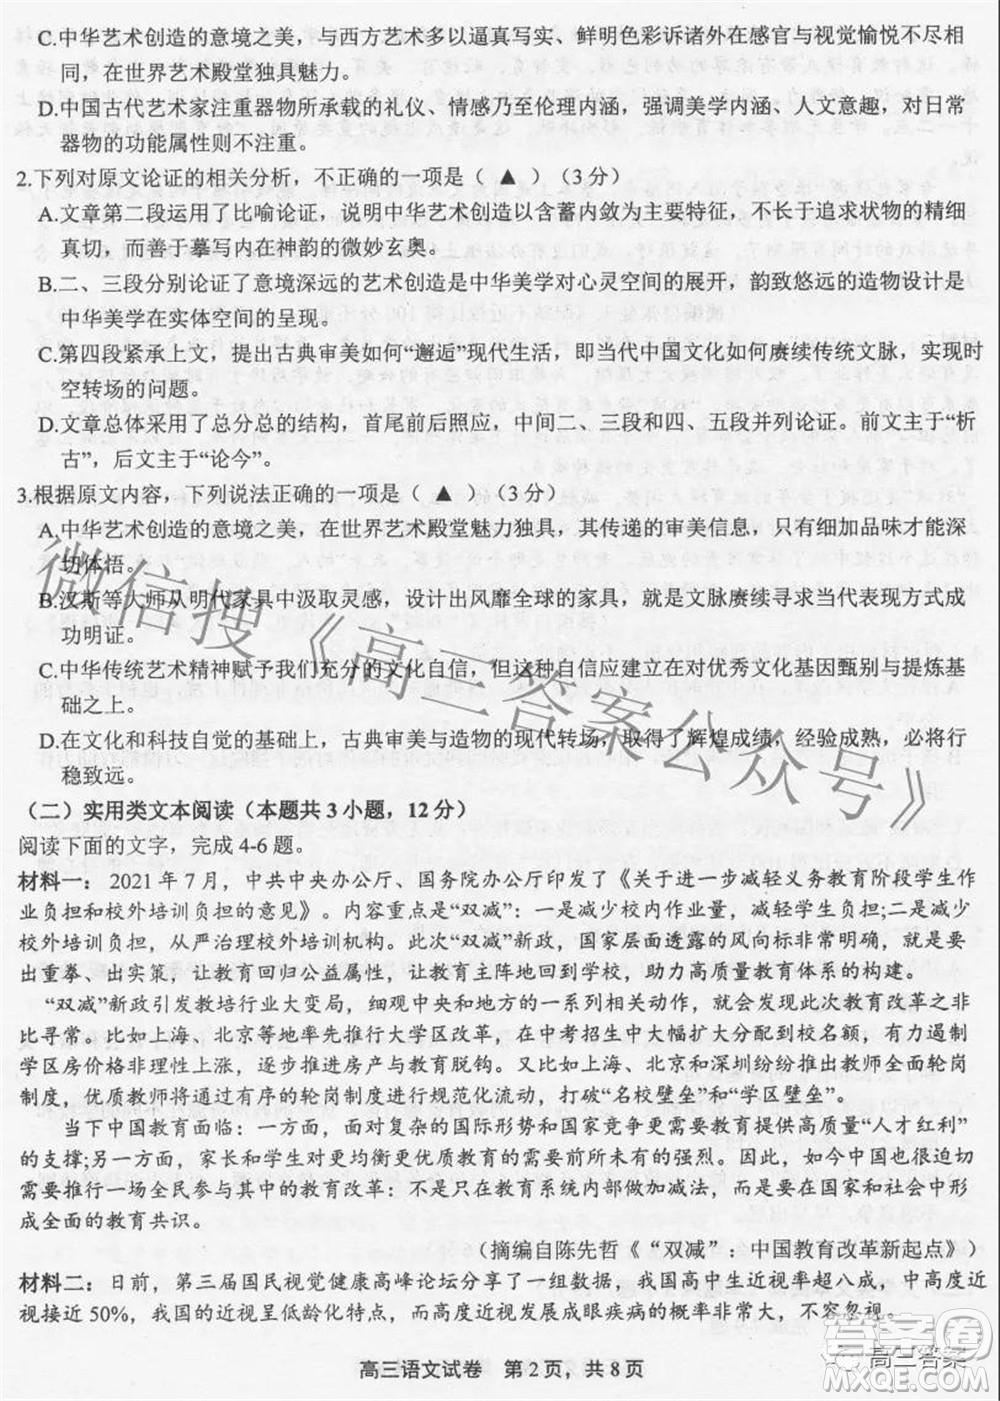 C.中华艺术创造的意境之美，与西方艺术多以逼真写实、鲜明色彩诉诸外在感官与视觉愉悦不尽相
同，在世界艺术殿堂独具魅力。
D.中国古代艺术家注重器物所承载的礼仪、情感乃至伦理内涵，强调美学内涵、人文意趣，对日常
器物的功能属性则不注重。
2.下列对原文论证的相关分析，不正确的一项是（ ▲ ）（3分）
A.文章第二段运用了比喻论证，说明中华艺术创造以含蓄内敛为主要特征，不长于追求状物的精细
真切，而善于摹写内在神韵的微妙玄奥。
B.二、三段分别论证了意境深远的艺术创造是中华美学对心灵空间的展开，韵致悠远的造物设计是
中华美学在实体空间的呈现。
C.第四段紧承上文，提出古典审美如何“邂逅”现代生活，即当代中国文化如何赓续传统文脉，实现时
空转场的问题。
D.文章总体采用了总分总的结构，首尾前后照应，中间二、三段和四、五段并列论证。前文主于“析
古”，后文主于“论今”。
3.根据原文内容，下列说法正确的一项是（ ▲ ）（3分）
A.中华艺术创造的意境之美，在世界艺术殿堂魅力独具，其传递的审美信息，只有细加品味才能深
切体悟。
B.汉斯等大师从明代家具中汲取灵感，设计出风靡全球的家具，就是文脉赓续寻求当代表现方式成
功明证。
C.中华传统艺术精神赋予我们充分的文化自信，但这种自信应建立在对优秀文化基因甄别与提炼基
础之上。
D.在文化和科技自觉的基础上，古典审美与造物的现代转场，取得了辉煌成绩，经验成熟，必将行
稳致远。
（二）实用类文本阅读（本题共3小题，12分）
阅读下面的文字，完成4-6题。
材料一：2021年7月，中共中央办公厅、国务院办公厅印发了《关于进一步减轻义务教育阶段学生作
业负担和校外培训负担的意见》。内容重点是“双减”：一是减少学校作业量，减轻学生负担;二是减少
校外培训负担，从严治理校外培训机构。此次“双减”新政，国家层面透露的风向标非常明确，就是要
出重拳、出实策，让教育回归公益属性，让教育主阵地回到学校，助力高质量教育体系的构建。
“双减”新政引发教培行业大变局，细观中央和地方的一系列相关动作，就会发现此次教育改革之非
比寻常。比如上海、北京等地率先推行大学区改革，在中考招生中大幅扩大分配到校名额，有力遏制
学区房价格非理性上涨，进一步推进房产与教育脱钩。又比如上海、北京和深圳纷纷推出教师全面轮岗
制度，优质师资的流动将通过有序的轮岗制度进行规范化流动，打破“名校壁垒”和“学区壁垒”。
当下中国教育面临：一方面，面对复杂的国际形势和国家竞争更需要教育提供高质量“人才红利”
的支撑;另一方面，家长和学生对更均衡更优质教育的需要前所未有的强烈。因此，如今中国也迫切
需要推行一场全民参与其中的教育改革：不是只在教育系统内部做加减法，而是要在国家和社会中形
成全面的教育共识。
（摘编自陈先哲《“双减”：中国教育改革新起点》）
材料二：日前，第三届国民视觉健康高峰论坛分享了一组数据，我国高中生近视超八成，中高度近
视接近50%，我国的近视呈低龄化特点，而高度近视发展成眼疾病的概率非常大，不容忽视。
高三语文试卷 第2页，共8页
微信搜《高三答案公众号》
高三答案
答案圈
MXQE.COM